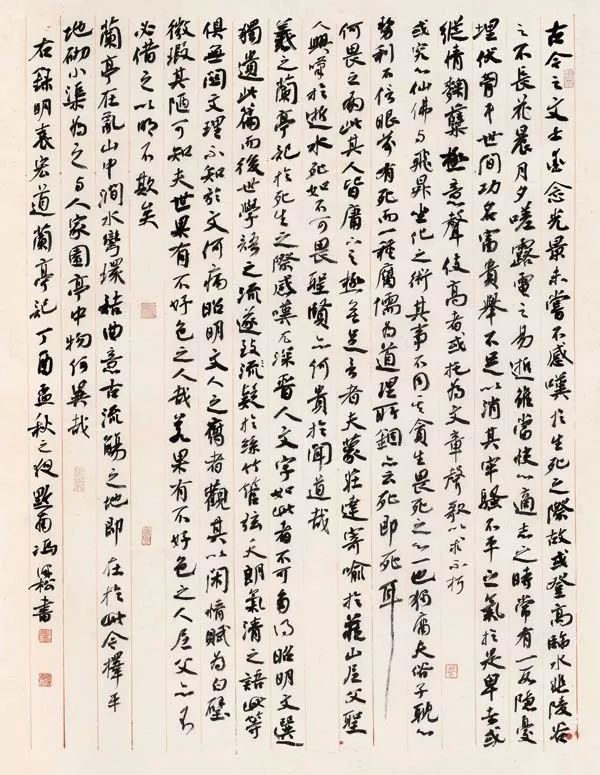 古今之文士愛念光景未嘗不感嘆於生死之際故或登高臨水悲陵谷
之不長花晨月夕嗟露電之易逝雖當快心適志之時常有一段隱憂
埋伏胷中世間功名富貴舉不足以消其牢騷不平之氣於是卑者或
縱情麴蘖極意聲伎高者或托為文章聲歌以求不朽
或究心仙佛与飛昇坐化之術其事不同其貪生畏死之心一也獨庸夫俗子耽心
勢利不信眼前有死而一種腐儒為道理所錮亦云死即死耳
何畏之有此其人皆庸下之極無足言者夫蒙莊達寄喻於藏山尼父聖
人興嘆於逝水死如不可畏聖賢亦何貴於聞道哉
羲之蘭亭記於死生之際感嘆尤深晋人文字如此者不可多得昭明文選
獨遺此篇而後世學語之流遂致流疑於絲竹管弦天朗氣清之語此等
俱無關文理不知於文何病昭明文人之腐者觀其以閑情賦為白璧
微瑕其陋可知夫世果有不好色之人哉若果有不好色之人尼父亦不
必借之以明不欺矣
蘭亭在亂山中澗水彎環詰曲意古流觴之地即在於此今擇平
地砌小渠為之与人家園亭中物何異哉
右錄明袁宏道蘭亭記丁酉孟秋之夜默甫馮書